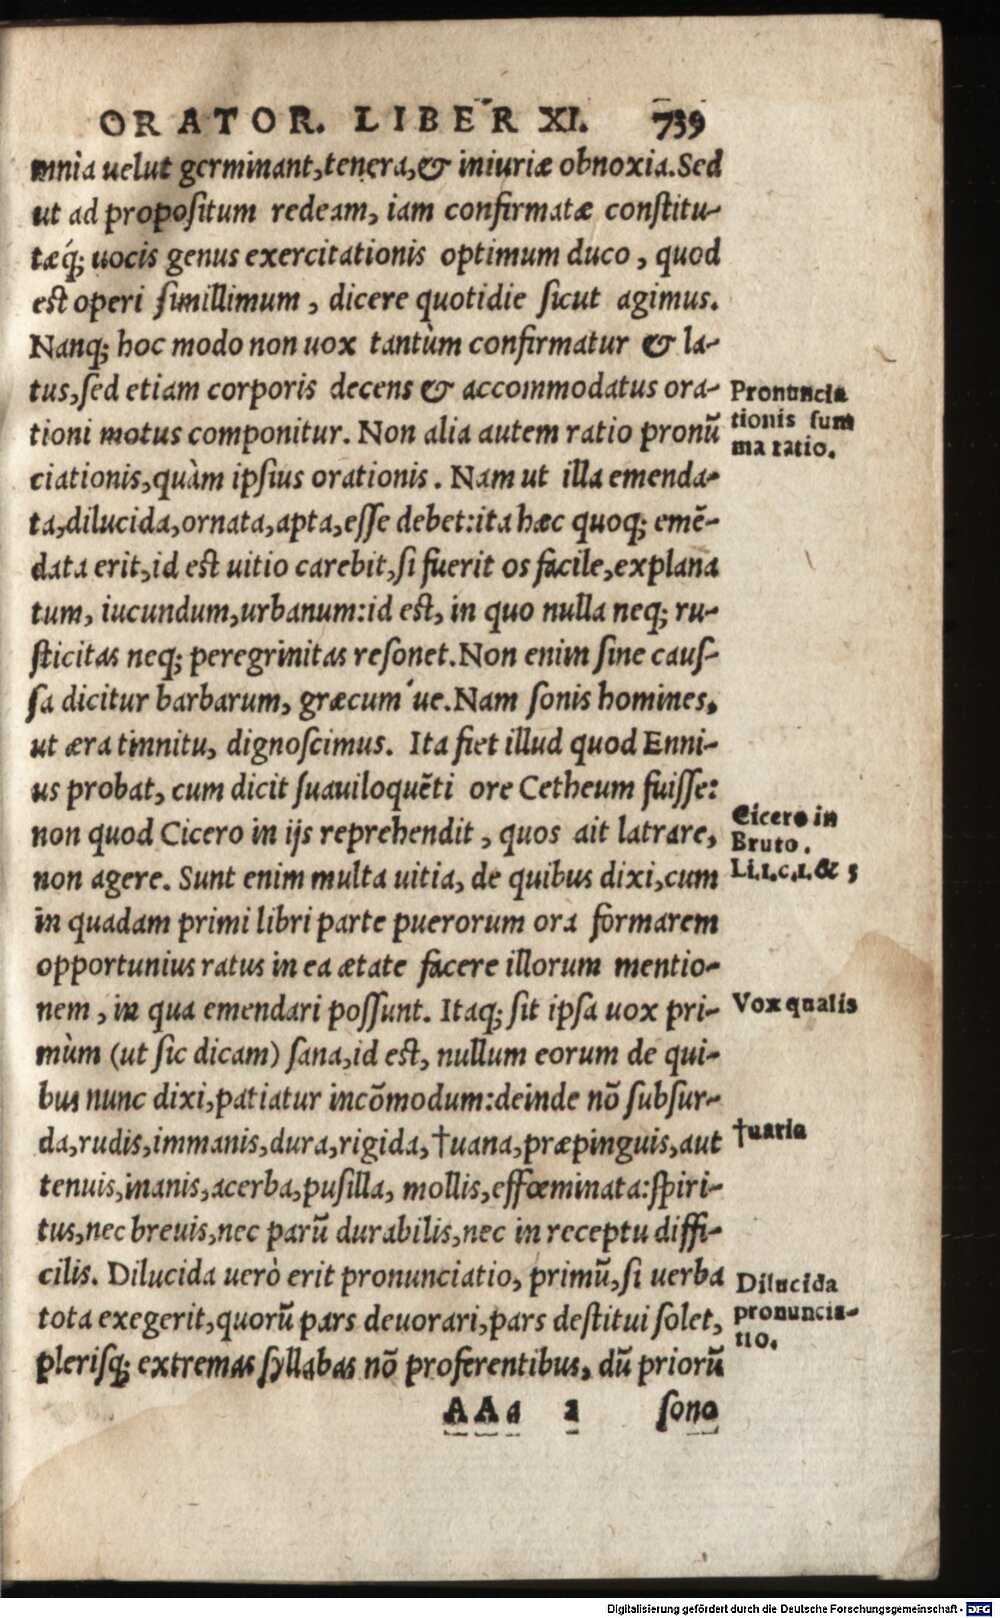 ORATOR. LIBER XI. 739
mnia uelut germinant, tenera, & iniuriæ obnoxia. Sed
ut ad propositum redeam, iam confirmatæ constitu-
tæq́; uocis genus exercitationis optimum duco, quod
est operi simillimum, dicere quotidie sicut agimus.
Nanq; hoc modo non uox tantùm confirmatur & la-
tus, sed etiam corporis decens & accommodatus ora-
Pronuncia
tioni motus componitur. Non alia autem ratio pronũ
tionis sum
ciationis, quàm ipsius orationis. Nam ut illa emenda-
ma ratio.
ta, dilucida, ornata, apta, esse debet: ita hæc quoq; emẽ-
data erit, id est uitio carebit, si fuerit os facile, explana
tum, iucundum, urbanum: id est, in quo nulla neq; ru-
sticitas neq; peregrinitas resonet. Non enim sine caus-
sa dicitur barbarum, græcum´ue. Nam sonis homines,
ut æra tinnitu, dignoscimus. Ita fiet illud quod Enni-
us probat, cum dicit suauiloquẽti ore Cetheum fuisse:
non quod Cicero in ijs reprehendit, quos ait latrare,
Cicero in
Bruto.
non agere. Sunt enim multa uitia, de quibus dixi, cum
Li.1.c.1.& 5
in quadam primi libri parte puerorum ora formarem
opportunius ratus in ea ætate facere illorum mentio-
nem, in qua emendari possunt. Itaq; sit ipsa uox pri-
Vox qualis
mùm (ut sic dicam) sana, id est, nullum eorum de qui-
bus nunc dixi, patiatur incõmodum: deinde nõ subsur-
da, rudis, immanis, dura, rigida, †uana, præpinguis, aut
†uaria
tenuis, inanis, acerba, pusilla, mollis, effœminata: spiri-
tus, nec breuis, nec parũ durabilis, nec in receptu diffi-
cilis. Dilucida uerò erit pronunciatio, primũ, si uerba
Dilucida
tota exegerit, quorũ pars deuorari, pars destitui solet,
pronuncia-
tio.
plerisq; extremas syllabas nõ proferentibus, dũ priorũ
AAa 2 sono
Digitalisierung gefördert durch die Deutsche Forschungsgemeinschaft - DFG